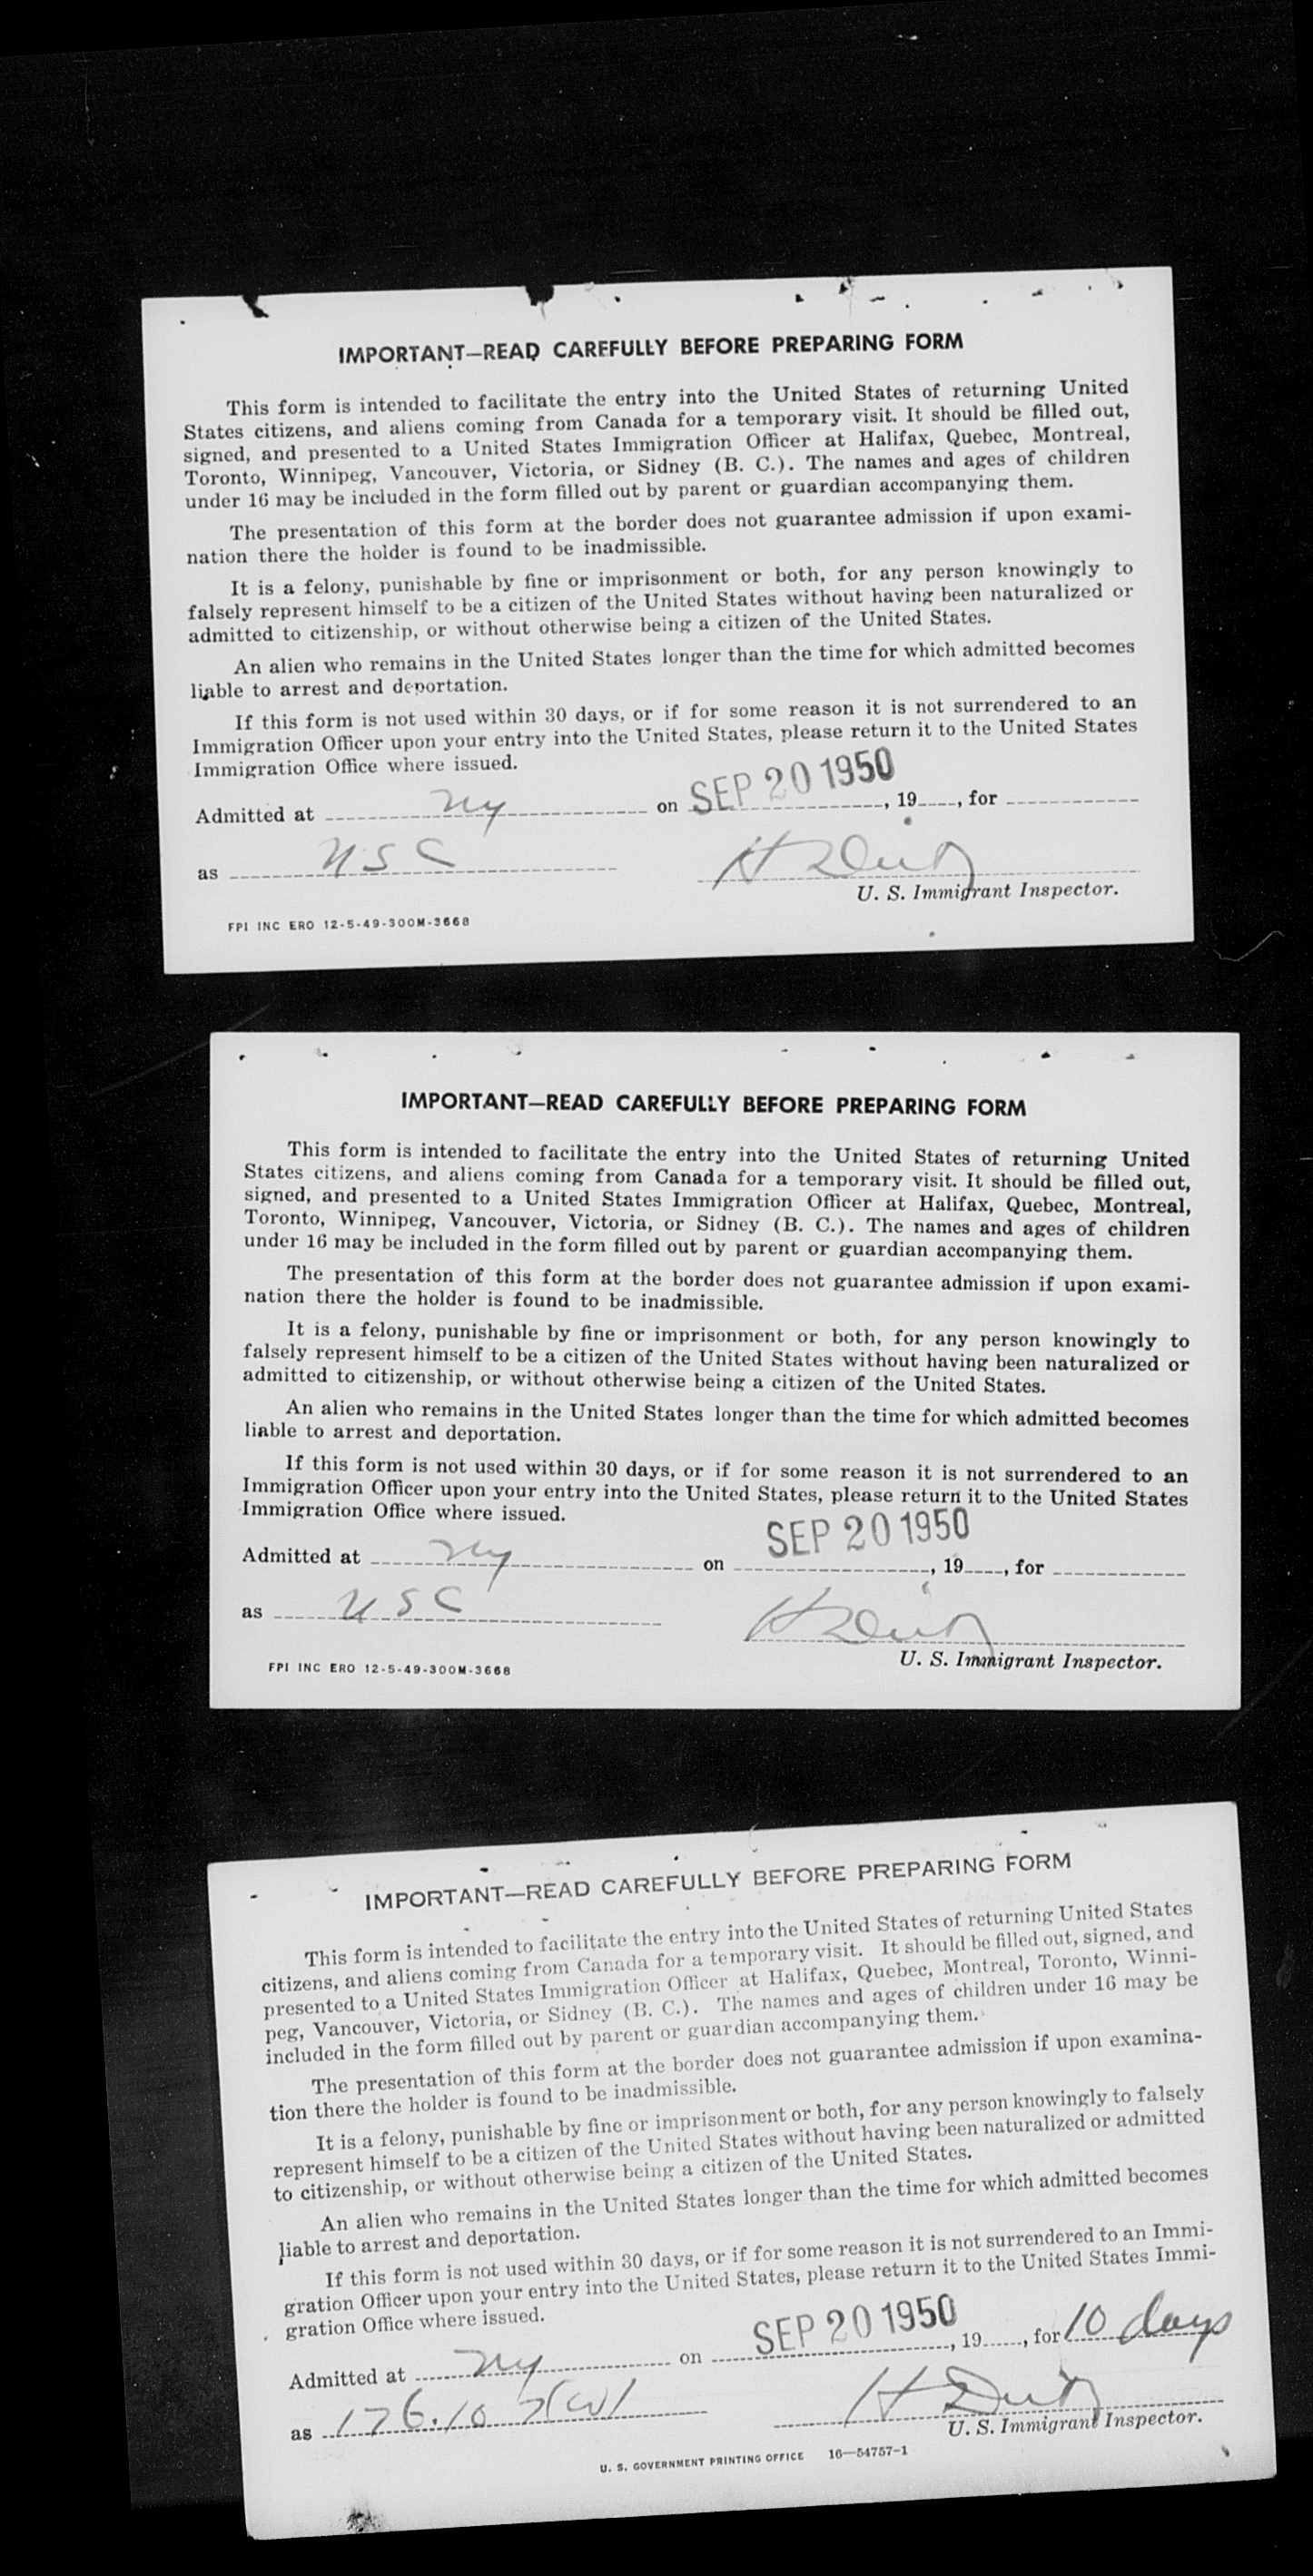 IMPORTANT—READ CAREFULLY BEFORE PREPARING FORM
This form is intended to facilitate the entry into the United States of returning United
States citizens, and aliens coming from Canada for a temporary visit. It should be filled out,
signed, and presented to a United States Immigration Officer at Halifax, Quebec, Montreal,
Toronto, Winnipeg, Vancouver, Victoria, or Sidney (B. C.). The names and ages of children
under 16 may be included in the form filled out by parent or guardian accompanying them.
The presentation of this form at the border does not guarantee admission if upon exami-
nation there the holder is found to be inadmissible.
It is a felony, punishable by fine or imprisonment or both, for any person knowingly to
falsely represent himself to be a citizen of the United States without having been naturalized or
admitted to citizenship, or without otherwise being a citizen of the United States.
An alien who remains in the United States longer than the time for which admitted becomes
liable to arrest and deportation.
If this form is not used within 30 days, or if for some reason it is not surrendered to an
Immigration Officer upon your entry into the United States, please return it to the United States
Immigration Office where issued.
Admitted at NY on SEP 20 1950, 19, for
as USC
U. S. Immigrant Inspector.
FPI INC ERO 12-5-49-300M-3668
IMPORTANT—READ CAREFULLY BEFORE PREPARING FORM
This form is intended to facilitate the entry into the United States of returning United
States citizens, and aliens coming from Canada for a temporary visit. It should be filled out,
signed, and presented to a United States Immigration Officer at Halifax, Quebec, Montreal,
Toronto, Winnipeg, Vancouver, Victoria, or Sidney (B. C.). The names and ages of children
under 16 may be included in the form filled out by parent or guardian accompanying them.
The presentation of this form at the border does not guarantee admission if upon exami-
nation there the holder is found to be inadmissible.
It is a felony, punishable by fine or imprisonment or both, for any person knowingly to
falsely represent himself to be a citizen of the United States without having been naturalized or
admitted to citizenship, or without otherwise being a citizen of the United States.
An alien who remains in the United States longer than the time for which admitted becomes
liable to arrest and deportation.
If this form is not used within 30 days, or if for some reason it is not surrendered to an
Immigration Officer upon your entry into the United States, please return it to the United States
Immigration Office where issued.
Admitted at NY on SEP 20 1950, 19, for
as USC
U. S. Immigrant Inspector.
FPI INC ERO 12-5-49-300M-3668
IMPORTANT—READ CAREFULLY BEFORE PREPARING FORM
This form is intended to facilitate the entry into the United States of returning United States
citizens, and aliens coming from Canada for a temporary visit. It should be filled out, signed, and
presented to a United States Immigration Officer at Halifax, Quebec, Montreal, Toronto, Winni-
peg, Vancouver, Victoria, or Sidney (B. C.). The names and ages of children under 16 may be
included in the form filled out by parent or guardian accompanying them.
The presentation of this form at the border does not guarantee admission if upon examina-
tion there the holder is found to be inadmissible.
It is a felony, punishable by fine or imprisonment or both, for any person knowingly to falsely
represent himself to be a citizen of the United States without having been naturalized or admitted
to citizenship, or without otherwise being a citizen of the United States.
An alien who remains in the United States longer than the time for which admitted becomes
liable to arrest and deportation.
If this form is not used within 30 days, or if for some reason it is not surrendered to an Immi-
gration Officer upon your entry into the United States, please return it to the United States Immi-
gration Office where issued.
Admitted at NY on SEP 20 1950, 19, for 10 days
as 176.10
U. S. Immigrant Inspector.
U. S. GOVERNMENT PRINTING OFFICE 16—54757-1